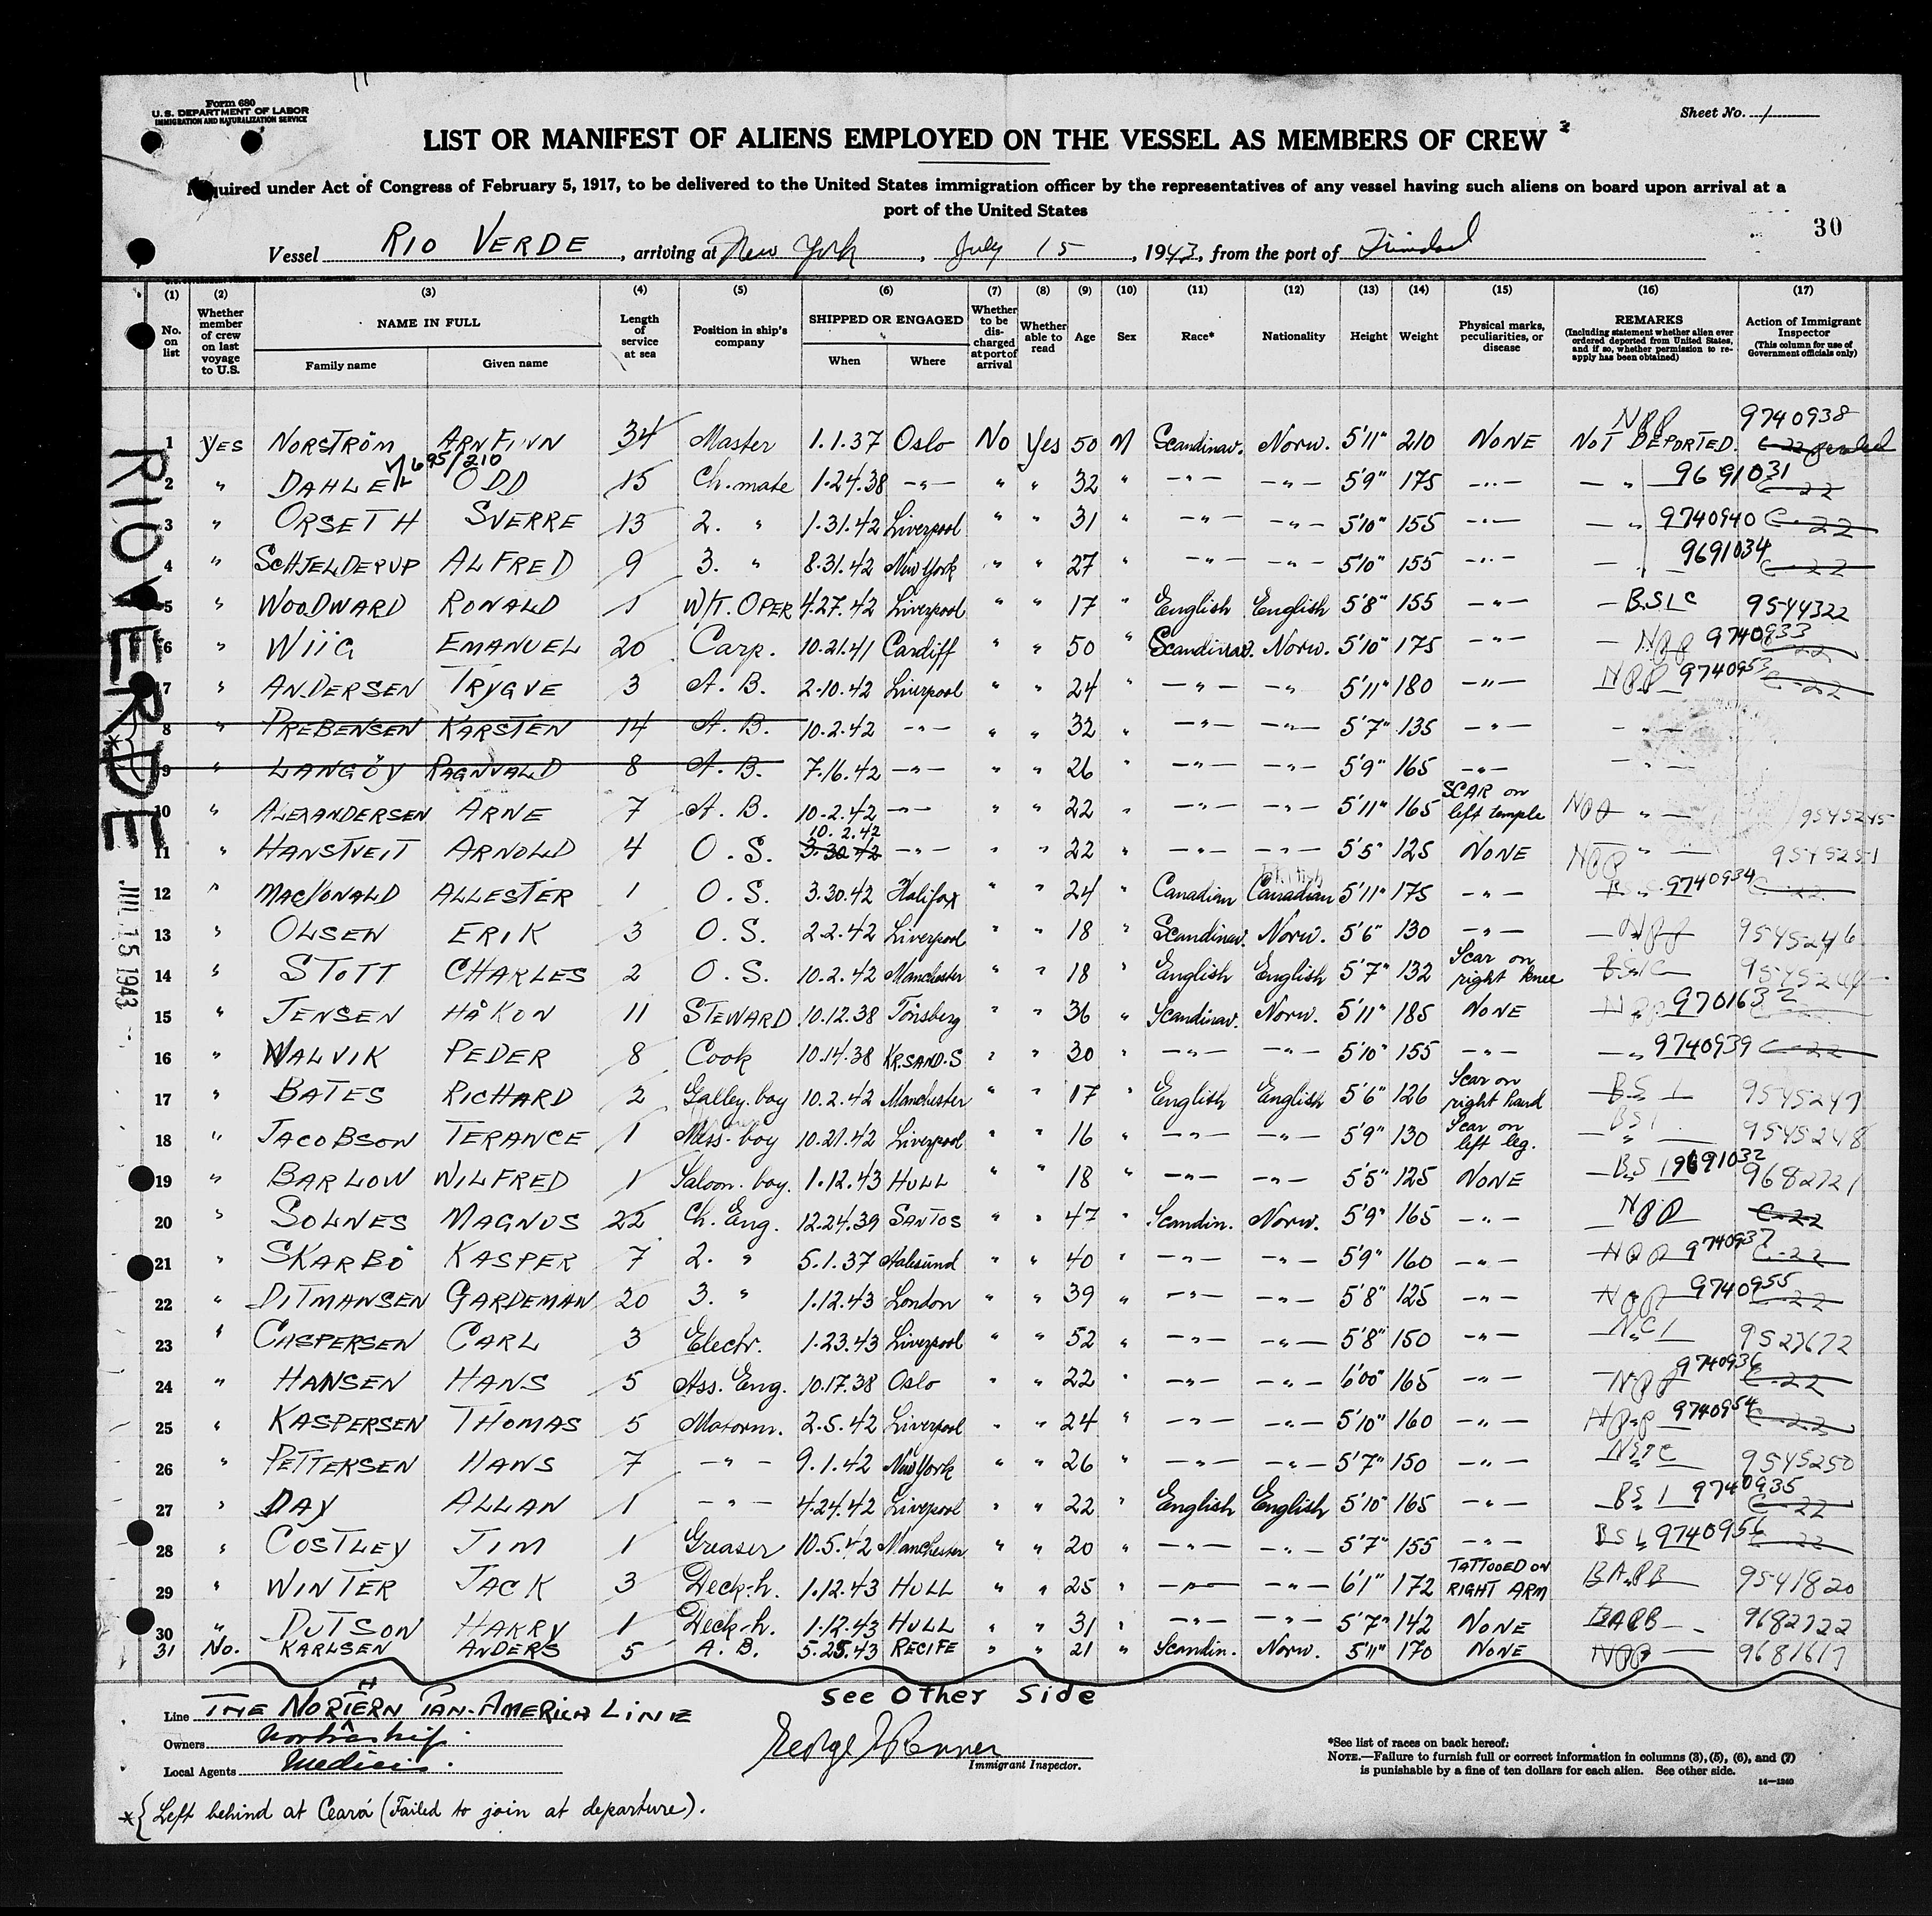 Form 680
U.S. DEPARTMENT OF LABOR
IMMIGRATION AND NATURALIZATION SERVICE
Sheet No. 1
LIST OR MANIFEST OF ALIENS EMPLOYED ON THE VESSEL AS MEMBERS OF CREW
Required under Act of Congress of February 5, 1917, to be delivered to the United States immigration officer by the representatives of any vessel having such aliens on board upon arrival at a
port of the United States
30
Vessel RIO VERDE, arriving at New York, July 15, 1943, from the port of Trinidad
(1) (2) (3) (4) (5) (6) (7) (8) (9) (10) (11) (12) (13) (14) (15) (16) (17)
No. on list
Whether member of crew on last voyage to U.S.
NAME IN FULL
Family name
Given name
Length of service at sea
Position in ship's company
SHIPPED OR ENGAGED
When
Where
Whether to be discharged at port of arrival
Whether able to read
Age
Sex
Race*
Nationality
Height
Weight
Physical marks, peculiarities, or disease
REMARKS
(Including statement whether alien ever ordered deported from United States, and if so, whether permission to reapply has been obtained)
Action of Immigrant Inspector
(This column for use of Government officials only)
1 Yes NORSTRÖM ARNFINN 34 Master 1.1.37 Oslo No Yes 50 M Scandinav. Norw. 5'11" 210 NONE NPP NOT DEPORTED. 9740938
2 " DAHLE ODD 15 Ch. mate 1.24.38 -"- " " 32 " -"- -"- 5'9" 175 -"- -" 9691031 C-22
3 " ORSETH SVERRE 13 2. " 1.31.42 Liverpool " " 31 " -"- -"- 5'10" 155 -"- -" 9740940 C-22
4 " SCHJELDERUP ALFRED 9 3. " 8.31.42 New York " " 27 " -"- -"- 5'10" 155 -"- -" 9691034 C-22
5 " WOODWARD RONALD 1 W/T. OPER 4.27.42 Liverpool " " 17 " English English 5'8" 155 -"- BSIC 9544322
6 " WIIG EMANUEL 20 Carp. 10.21.41 Cardiff " " 50 " Scandinav. Norw. 5'10" 175 -"- NPP 9740933 C-22
7 " ANDERSEN TRYGVE 3 A.B. 2.10.42 Liverpool " " 24 " -"- -"- 5'11" 180 -"- NPP 9740953 C-22
8 " PREBENSEN KARSTEN 14 A.B. 10.2.42 -"- " " 32 " -"- -"- 5'7" 135 -"- -"-
9 " LANGÖY RAGNVALD 8 A.B. 7.16.42 -"- " " 26 " -"- -"- 5'9" 165 -"- -"-
10 " ALEXANDERSEN ARNE 7 A.B. 10.2.42 -"- " " 22 " -"- -"- 5'11" 165 SCAR on left temple NPP "- 9545245
11 " HANSTVEIT ARNOLD 4 O.S. 3.30.42 10.2.42 -"- " " 22 " -"- -"- 5'5" 125 NONE NPP "- 9545251
12 " MACDONALD ALLESTER 1 O.S. 3.30.42 Halifax " " 24 " Canadian British Canadian 5'11" 175 -"- 9740934 C-22
13 " OLSEN ERIK 3 O.S. 2.2.42 Liverpool " " 18 " Scandinav. Norw. 5'6" 130 -"- NPP 9545246
14 " STOTT CHARLES 2 O.S. 10.2.42 Manchester " " 18 " English English 5'7" 132 Scar on right knee BSIC 9545244
15 " JENSEN HÅKON 11 STEWARD 10.12.38 Tönsberg " " 36 " Scandinav. Norw. 5'11" 185 NONE NPP 9701632
16 " WALVIK PEDER 8 Cook 10.14.38 KR.SAND.S " " 30 " -"- -"- 5'10" 155 -"- -" 9740939 C-22
17 " BATES RICHARD 2 Galley boy 10.2.42 Manchester " " 17 " English English 5'6" 126 Scar on right hand BSI 9545247
18 " JACOBSON TERANCE 1 Mess-boy 10.21.42 Liverpool " " 16 " -"- -"- 5'9" 130 Scar on left leg. BSI 9545248
19 " BARLOW WILFRED 1 Saloon boy. 1.12.43 HULL " " 18 " -"- -"- 5'5" 125 NONE BSI 9691032 9682721
20 " SOLNES MAGNUS 22 Ch. Eng. 12.24.39 SANTOS " " 47 " Scandin. Norw. 5'9" 165 -"- NPP C-22
21 " SKARBÖ KASPER 7 2. " 5.1.37 Aalesund " " 40 " -"- -"- 5'9" 160 -"- NPP 9740937 C-22
22 " DITMANSEN GARDEMAN 20 3. " 1.12.43 London " " 39 " -"- -"- 5'8" 125 -"- NPP 9740955 C-22
23 " CASPERSEN CARL 3 Electr. 1.23.43 Liverpool " " 52 " -"- -"- 5'8" 150 -"- NCI 9523672
24 " HANSEN HANS 5 Ass. Eng. 10.17.38 Oslo " " 22 " -"- -"- 6'00" 165 -"- NPP 9740936 C-22
25 " KASPERSEN THOMAS 5 Motorm. 2.5.42 Liverpool " " 24 " -"- -"- 5'10" 160 -"- NPP 9740954 C-22
26 " PETTERSEN HANS 7 -"- 9.1.42 New York " " 26 " -"- -"- 5'7" 150 -"- NSIC 9545250
27 " DAY ALLAN 1 -"- 4.24.42 Liverpool " " 22 " English English 5'10" 165 -"- BSI 9740935 C-22
28 " COSTLEY JIM 1 Greaser 10.5.42 Manchester " " 20 " -"- -"- 5'7" 155 -"- BSI 9740956 C-22
29 " WINTER JACK 3 Deck-h. 1.12.43 HULL " " 25 " -"- -"- 6'1" 172 TATTOOED ON RIGHT ARM BAPB 9541820
30 " DUTSON HARRY 1 Deck-h. 1.12.43 HULL " " 31 " -"- -"- 5'7" 142 NONE BAPB 9682722
31 No. KARLSEN ANDERS 5 A.B. 5.25.43 RECIFE " " 21 " Scandin. Norw. 5'11" 170 NONE NPP 9681617
RIO VERDE
JUL 15 1943
See Other Side
Line THE NORTHERN PAN-AMERICA LINE
Owners Nortraship
Local Agents
Immigrant Inspector.
*See list of races on back hereof.
NOTE.—Failure to furnish full or correct information in columns (3), (5), (6), and (7)
is punishable by a fine of ten dollars for each alien. See other side.
14—1240
*{ Left behind at Ceará (Failed to join at departure).